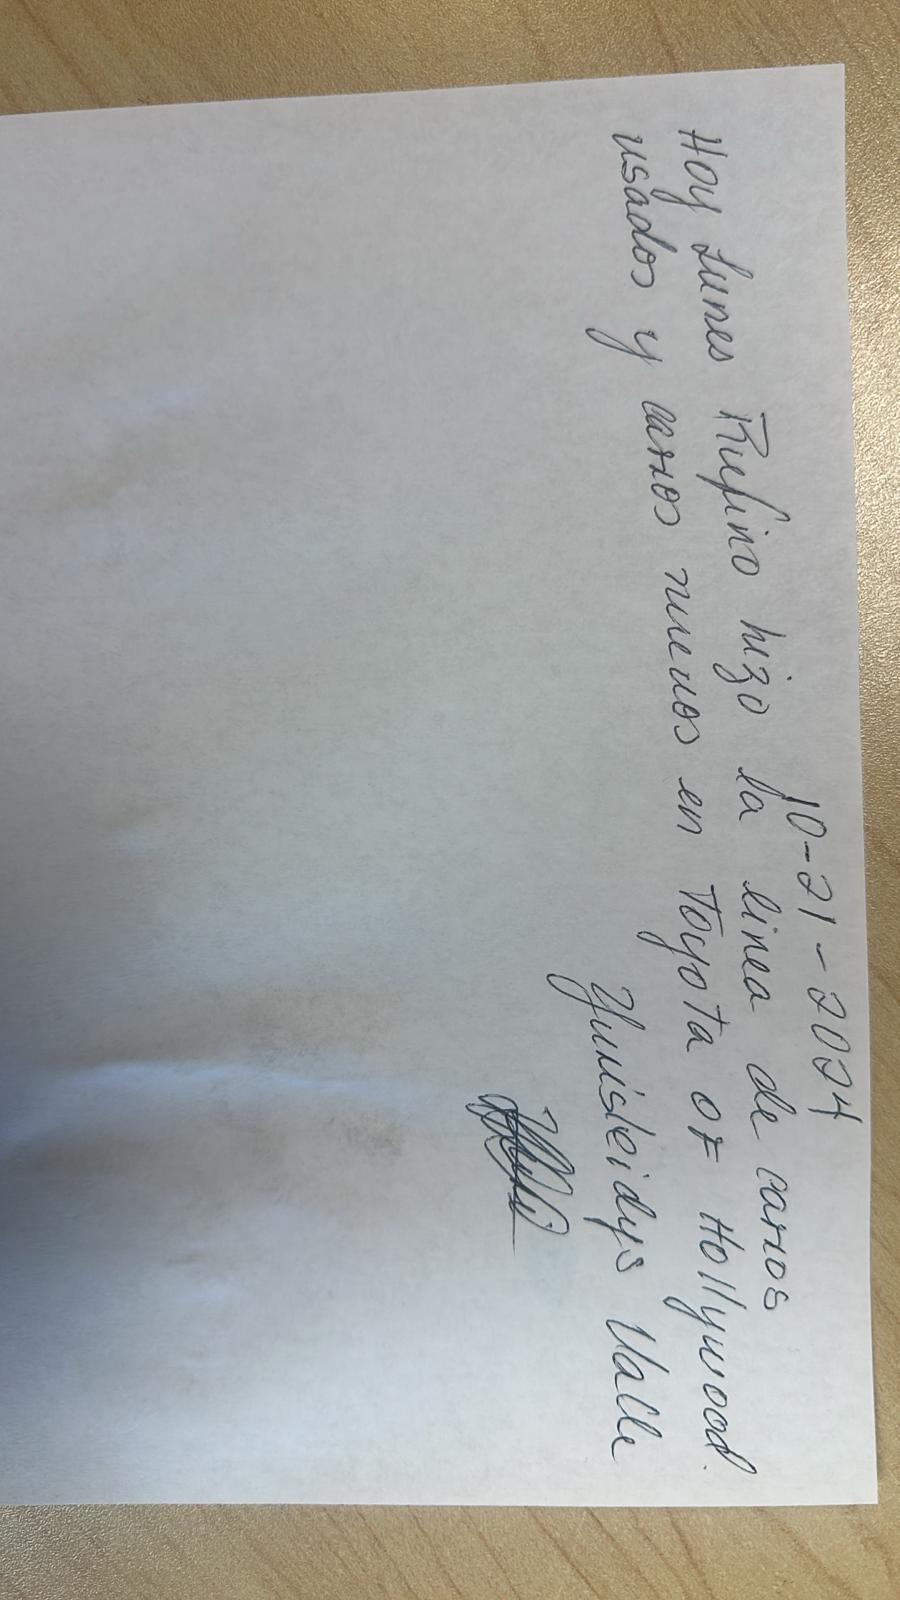 10-21-2024
Hoy Lunes Rufino hizo la linea de carros
usados y carros nuevos en Toyota of Hollywood.
Yunisleidys Valle